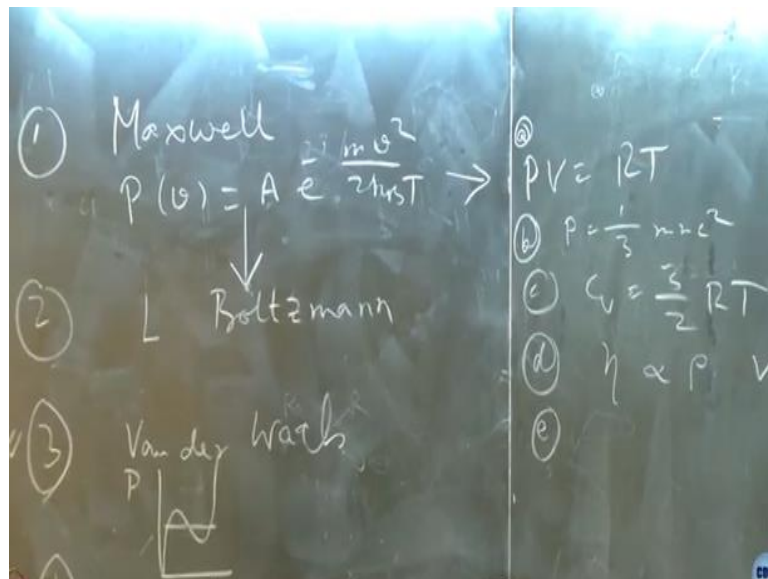 ① Maxwell
P(v) = A e^{-\frac{mv^2}{2k_BT}} →
② L Boltzmann
③ Van der Waals
P
ⓐ
PV = RT
ⓑ P = \frac{1}{3} mnc^2
ⓒ C_v = \frac{3}{2} RT
ⓓ η ∝ ρ
ⓔ